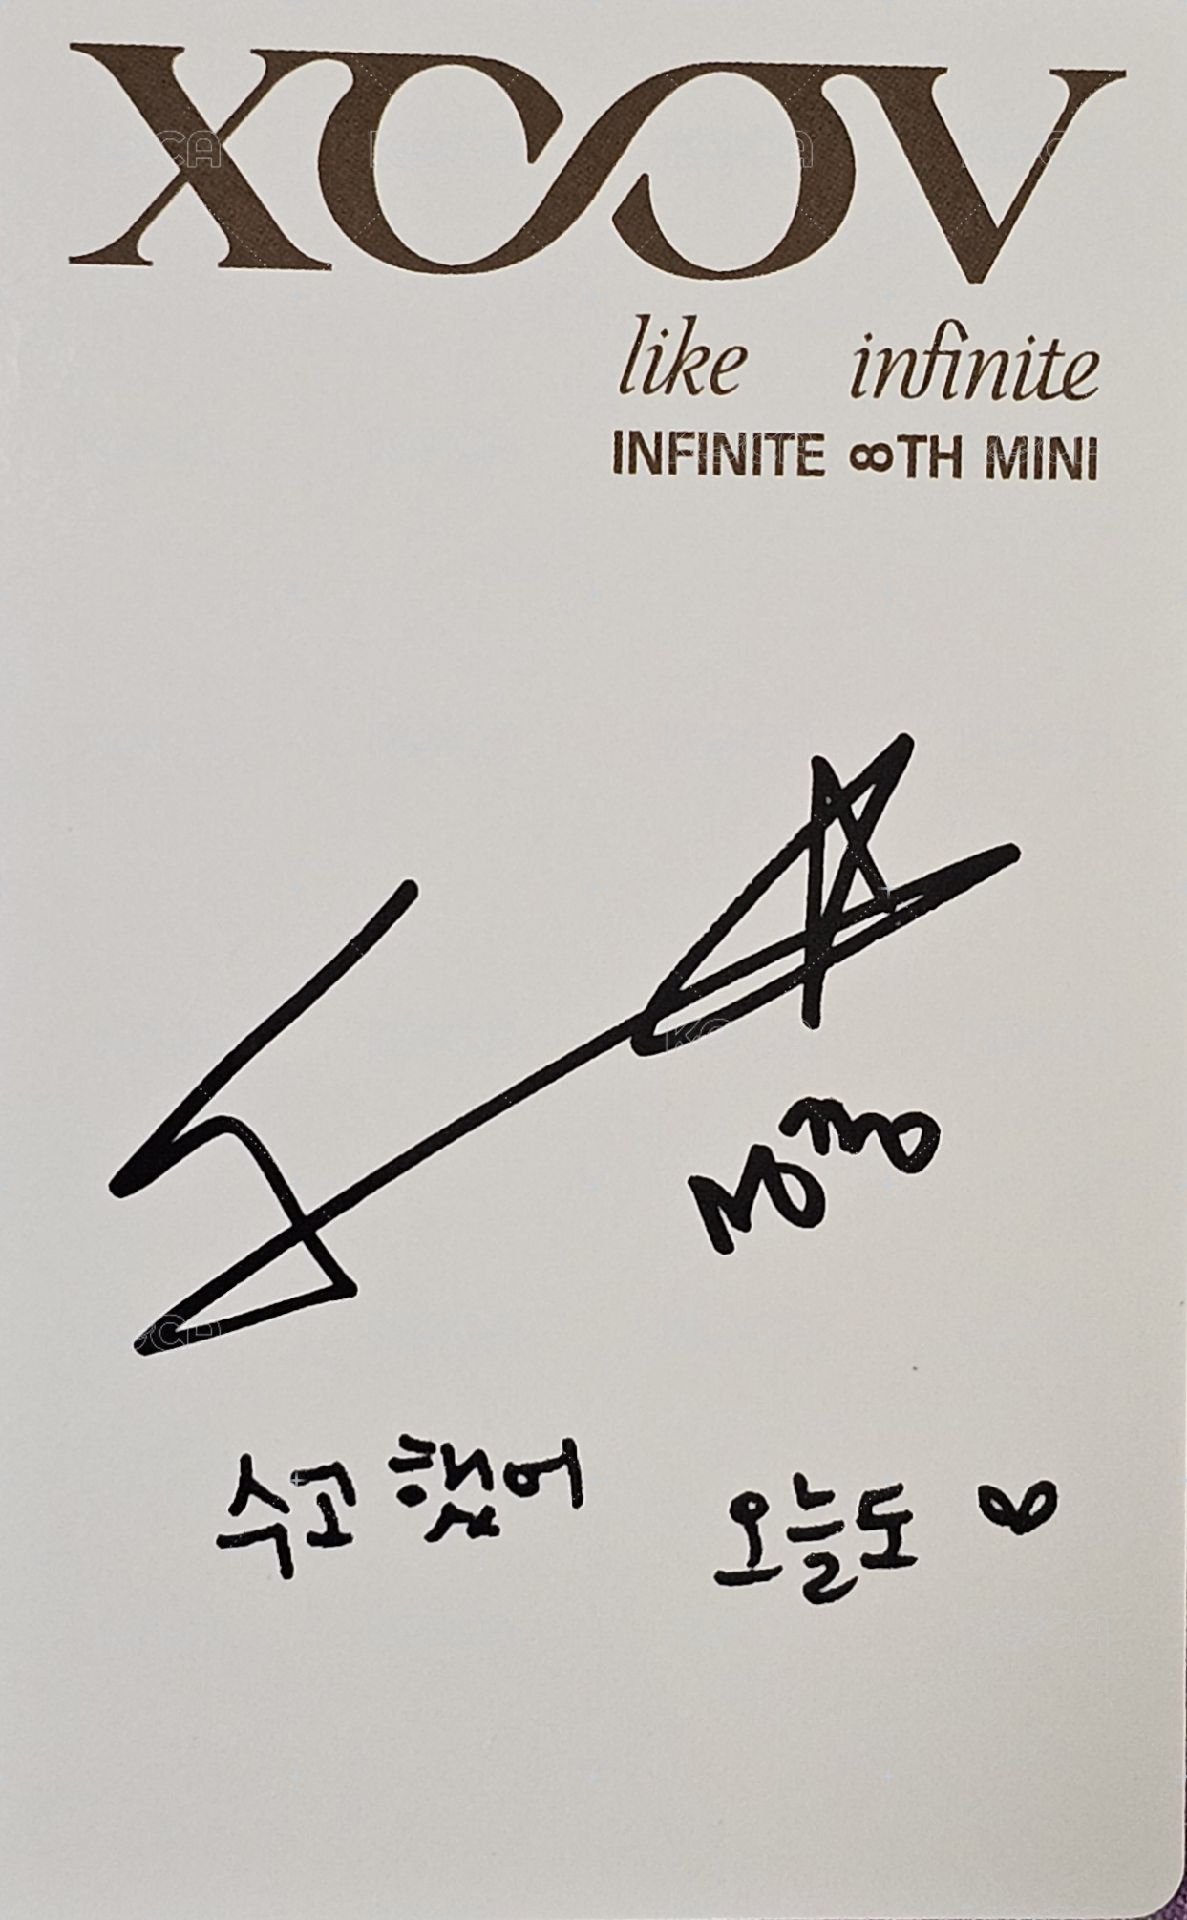 XOOV
like infinite
INFINITE ∞TH MINI
수고 했어 오늘도